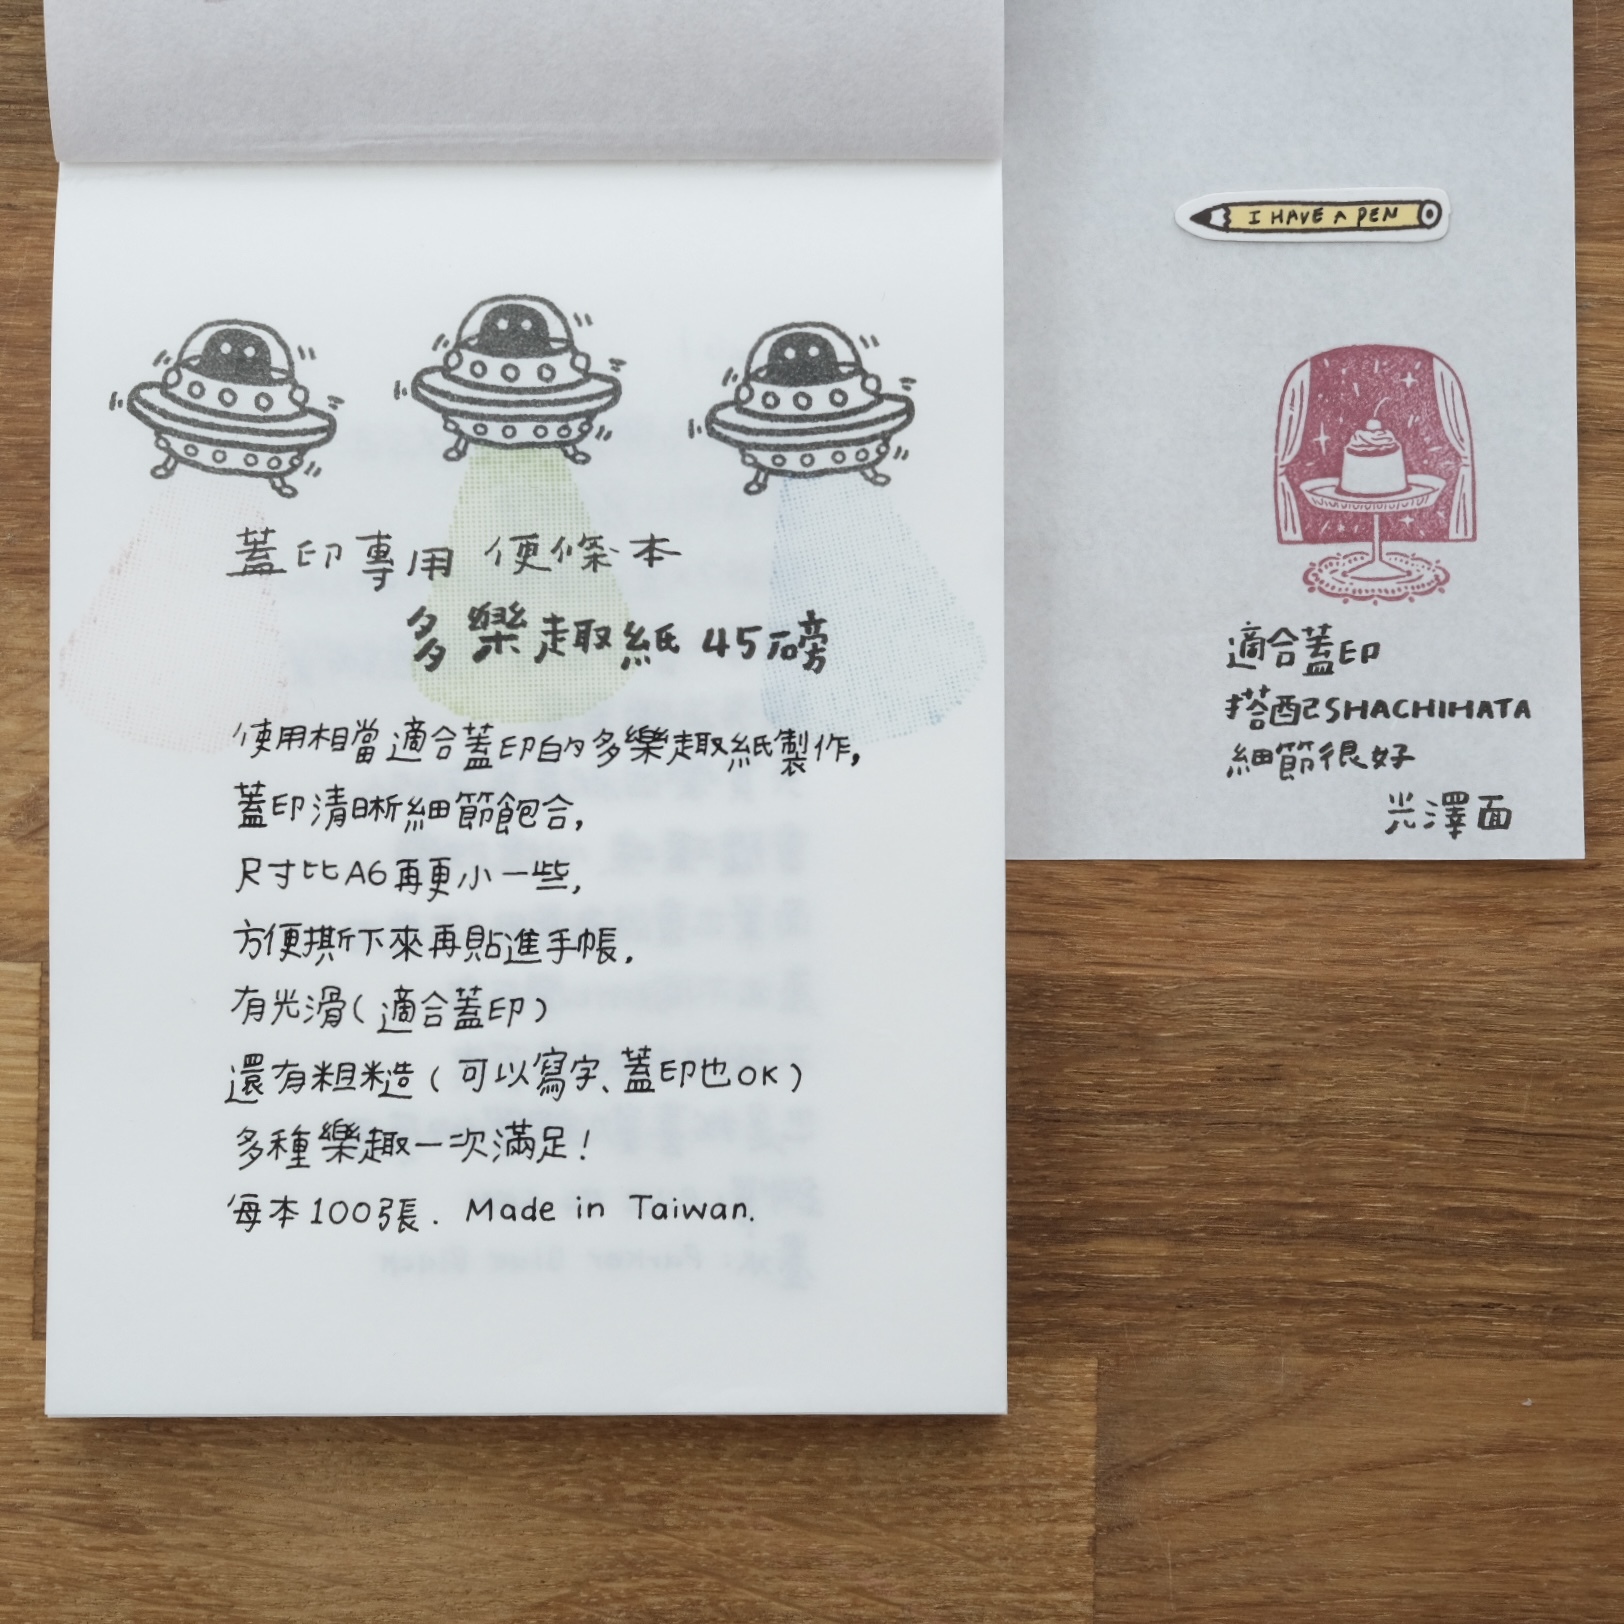 蓋印專用 便條本
多樂趣紙 45磅
使用相當適合蓋印的多樂趣紙製作,
蓋印清晰細節飽合,
尺寸比A6再更小一些,
方便撕下來再貼進手帳.
有光滑(適合蓋印)
還有粗糙(可以寫字、蓋印也OK)
多種樂趣一次滿足!
每本100張. Made in Taiwan.
I HAVE A PEN
適合蓋印
搭配SHACHIHATA
細節很好
光澤面